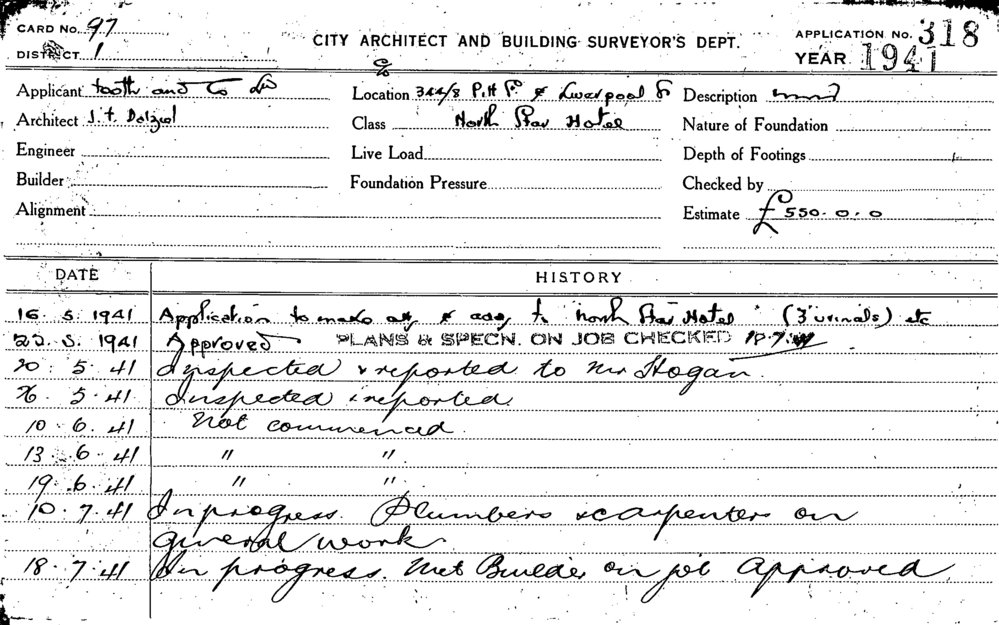 CARD No. 97
DISTRICT 1
CITY ARCHITECT AND BUILDING SURVEYOR'S DEPT.
APPLICATION No. 318
YEAR 1941
Applicant Tooth and Co Ltd
Location 344/8 Pitt St & Liverpool St
Description
Architect J. T.
Class North Star Hotel
Nature of Foundation
Engineer
Live Load
Depth of Footings
Builder
Foundation Pressure
Checked by
Alignment
Estimate £550.0.0
DATE
HISTORY
16. 5. 1941 Application to make & to North Star Hotel (3 urinals) etc
5. 1941 Approved PLANS & SPECN. ON JOB CHECKED 10.7.41
20. 5. 41 Inspected & reported to Mr Hogan.
26. 5. 41. Inspected & reported.
10. 6. 41 Not commenced.
13. 6. 41 " ".
19. 6. 41 " ".
10. 7. 41 In progress. Plumbers & carpenters on
general work.
18. 7. 41 In progress. Met Builder on job Approved.